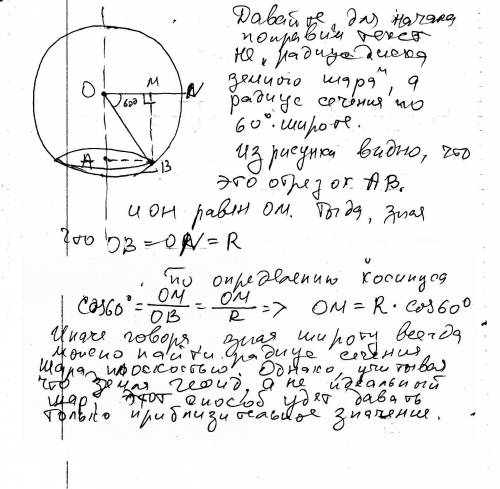 Давайте, для начала
поправим текст
не "радиус диска
земного шара", а
радиус сечения по
60° широте.
O M N
60°
A B
Из рисунка видно, что
это отрезок AB.
и он равен OM. Тогда, зная
что OB = ON = R
по определению косинуса
cos60° = OM/OB = OM/R => OM = R · cos60°
Иначе говоря, зная широту всегда
можно найти радиус сечения
шара плоскостью. Однако, учитывая
что земля геоид, а не идеальный
шар, этот способ удет давать
только приблизительное значение.